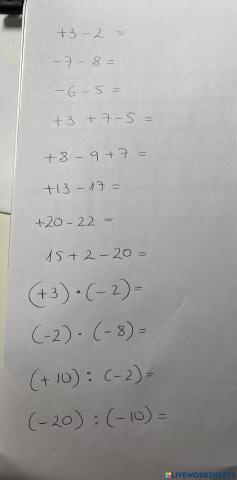 +3-2 =
-7-8=
-6-5=
+3 +7-5=
+8-9+7=
+13-17=
+20-22=
15+2-20=
(+3)·(-2)=
(-2)·(-8)=
(+10):(-2)=
(-20):(-10)=
LIVEWORKSHEETS